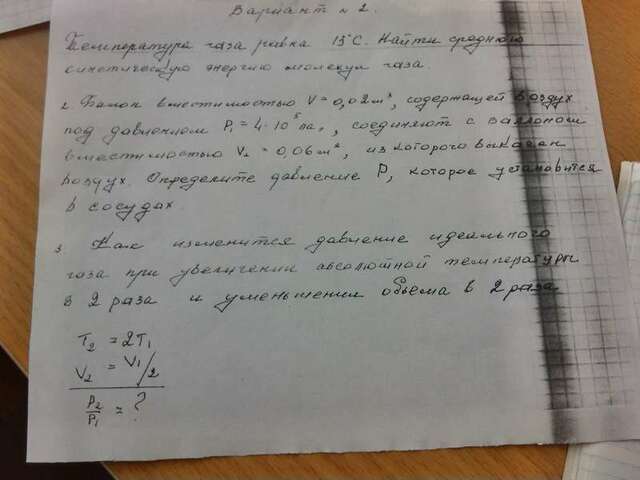 Вариант № 2.
Температура газа равна 15°С. Найти среднюю
кинетическую энергию молекул газа.
2. Балон вместимостью V = 0,02 м³, содержащей воздух
под давлением P₁ = 4·10⁵ Па, соединяют с баллоном
вместимостью V₂ = 0,06 м³, из которого выкачан
воздух. Определите давление P, которое установится
в сосудах
3. Как изменится давление идеального
газа при увеличении абсолютной температуры
в 2 раза и уменьшении объема в 2 раза
T₂ = 2T₁
V₂ = V₁/2
P₂/P₁ = ?